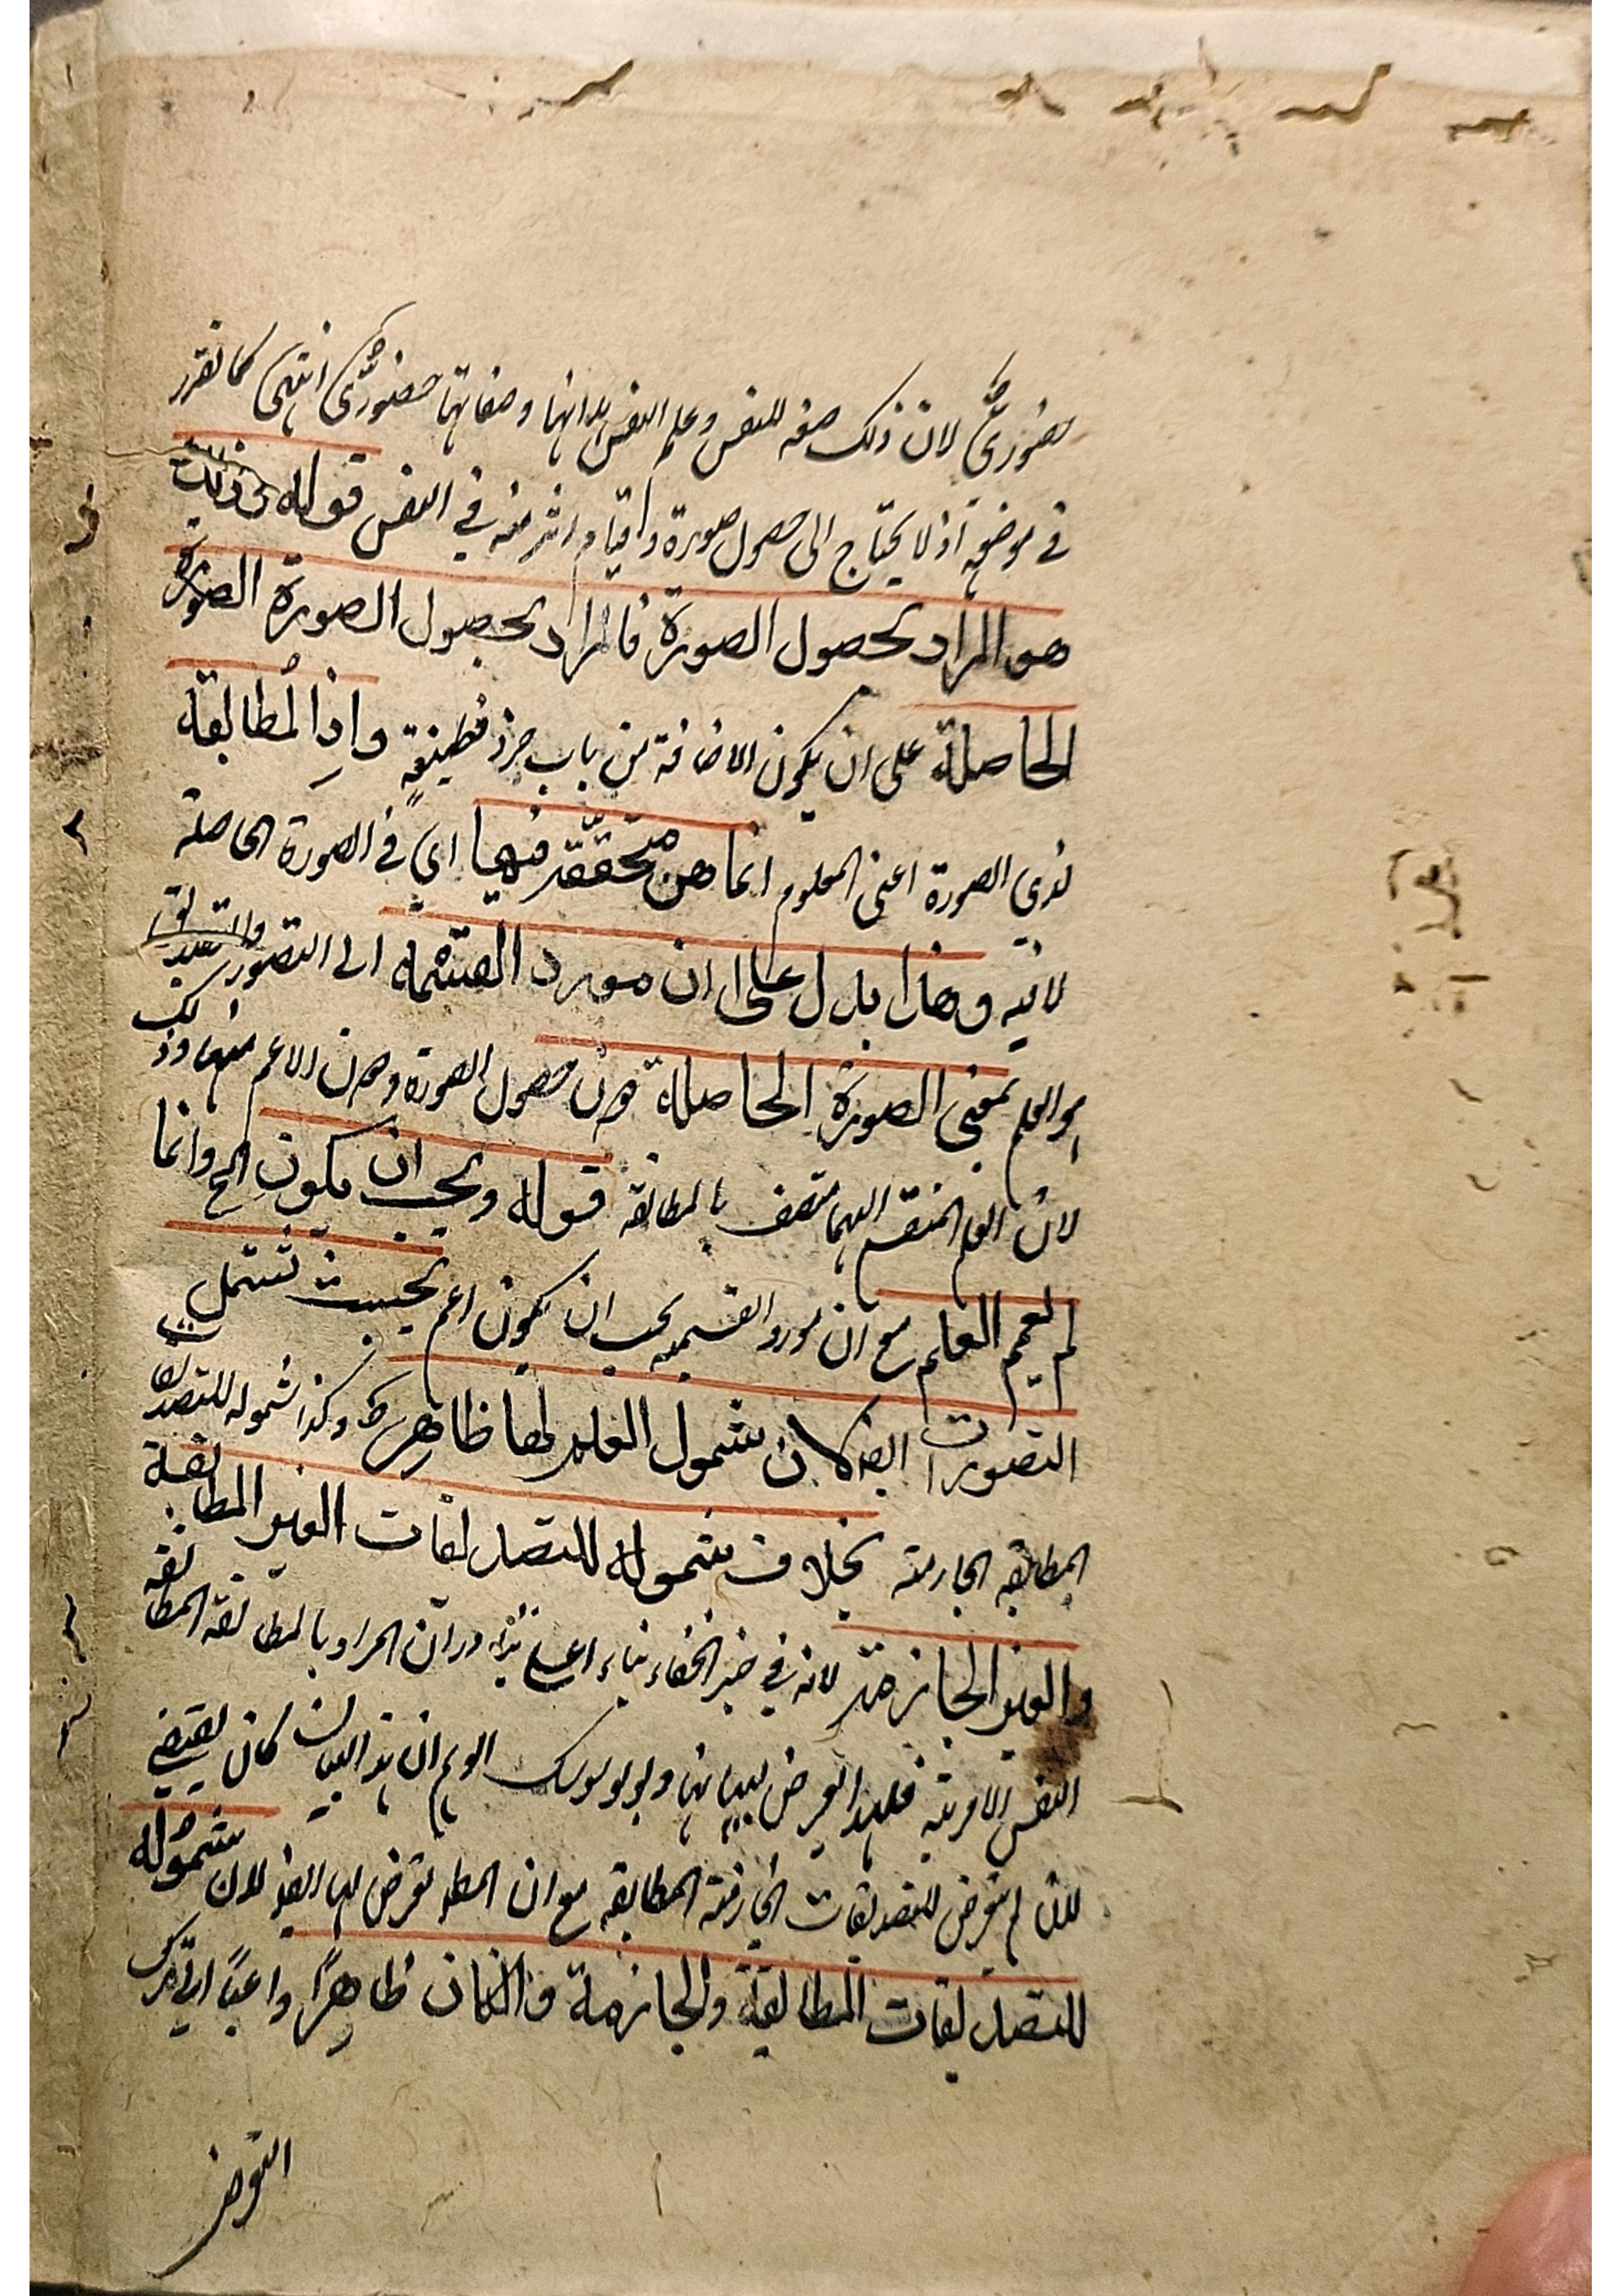 حضوريّ لان ذلك صفة للنفس وعلم النفس بذاتها وصفاتها حضوريّ انتهى كما تقرر
في موضعه اذ لا يحتاج الى حصول صورة واقيام اثر منه في النفس قوله وذلك
هو المراد بحصول الصورة فالمراد بحصول الصورة الصورة
الحاصلة على ان يكون الاضافة من باب جرد قطيفةٍ واذ المطابقة
لذى الصورة اعنى المعلوم انما هى متحققة فيها اى في الصورة الحاصلة
لا فيه وهذا يدل على ان مورد القسمة الى التصور والتصديق
هو العلم بمعنى الصورة الحاصلة دون حصول الصورة ودون الاعم منهما وذلك
لان العلم المنقسم اليهما متصف بالمطابقة قوله ويجب ان يكون الخ وانما
لم يعم العلم مع ان مورد القسمة يجب ان يكون اعم بحيث تشمل
التصورات ايضا لان شمول العلم لها ظاهر وكذا شموله للتصديقات
المطابقه الجازمة بخلاف شموله للتصديقات الغير المطابقة
والغير الجازمة لانه في حيز الخفاء بناء على تبادر انّ المراد بالمطابقة المطابقة
النفس الامرية فلهذا تعرض لبيانها ان هذا البيان كان يقتضى
لان لم يتعرض للتصديقات الجازمة المطابقه مع ان المط تعرض لها ايضا لان شموله
للتصديقات المطابقة والجازمة وان كان ظاهرًا
التعرض